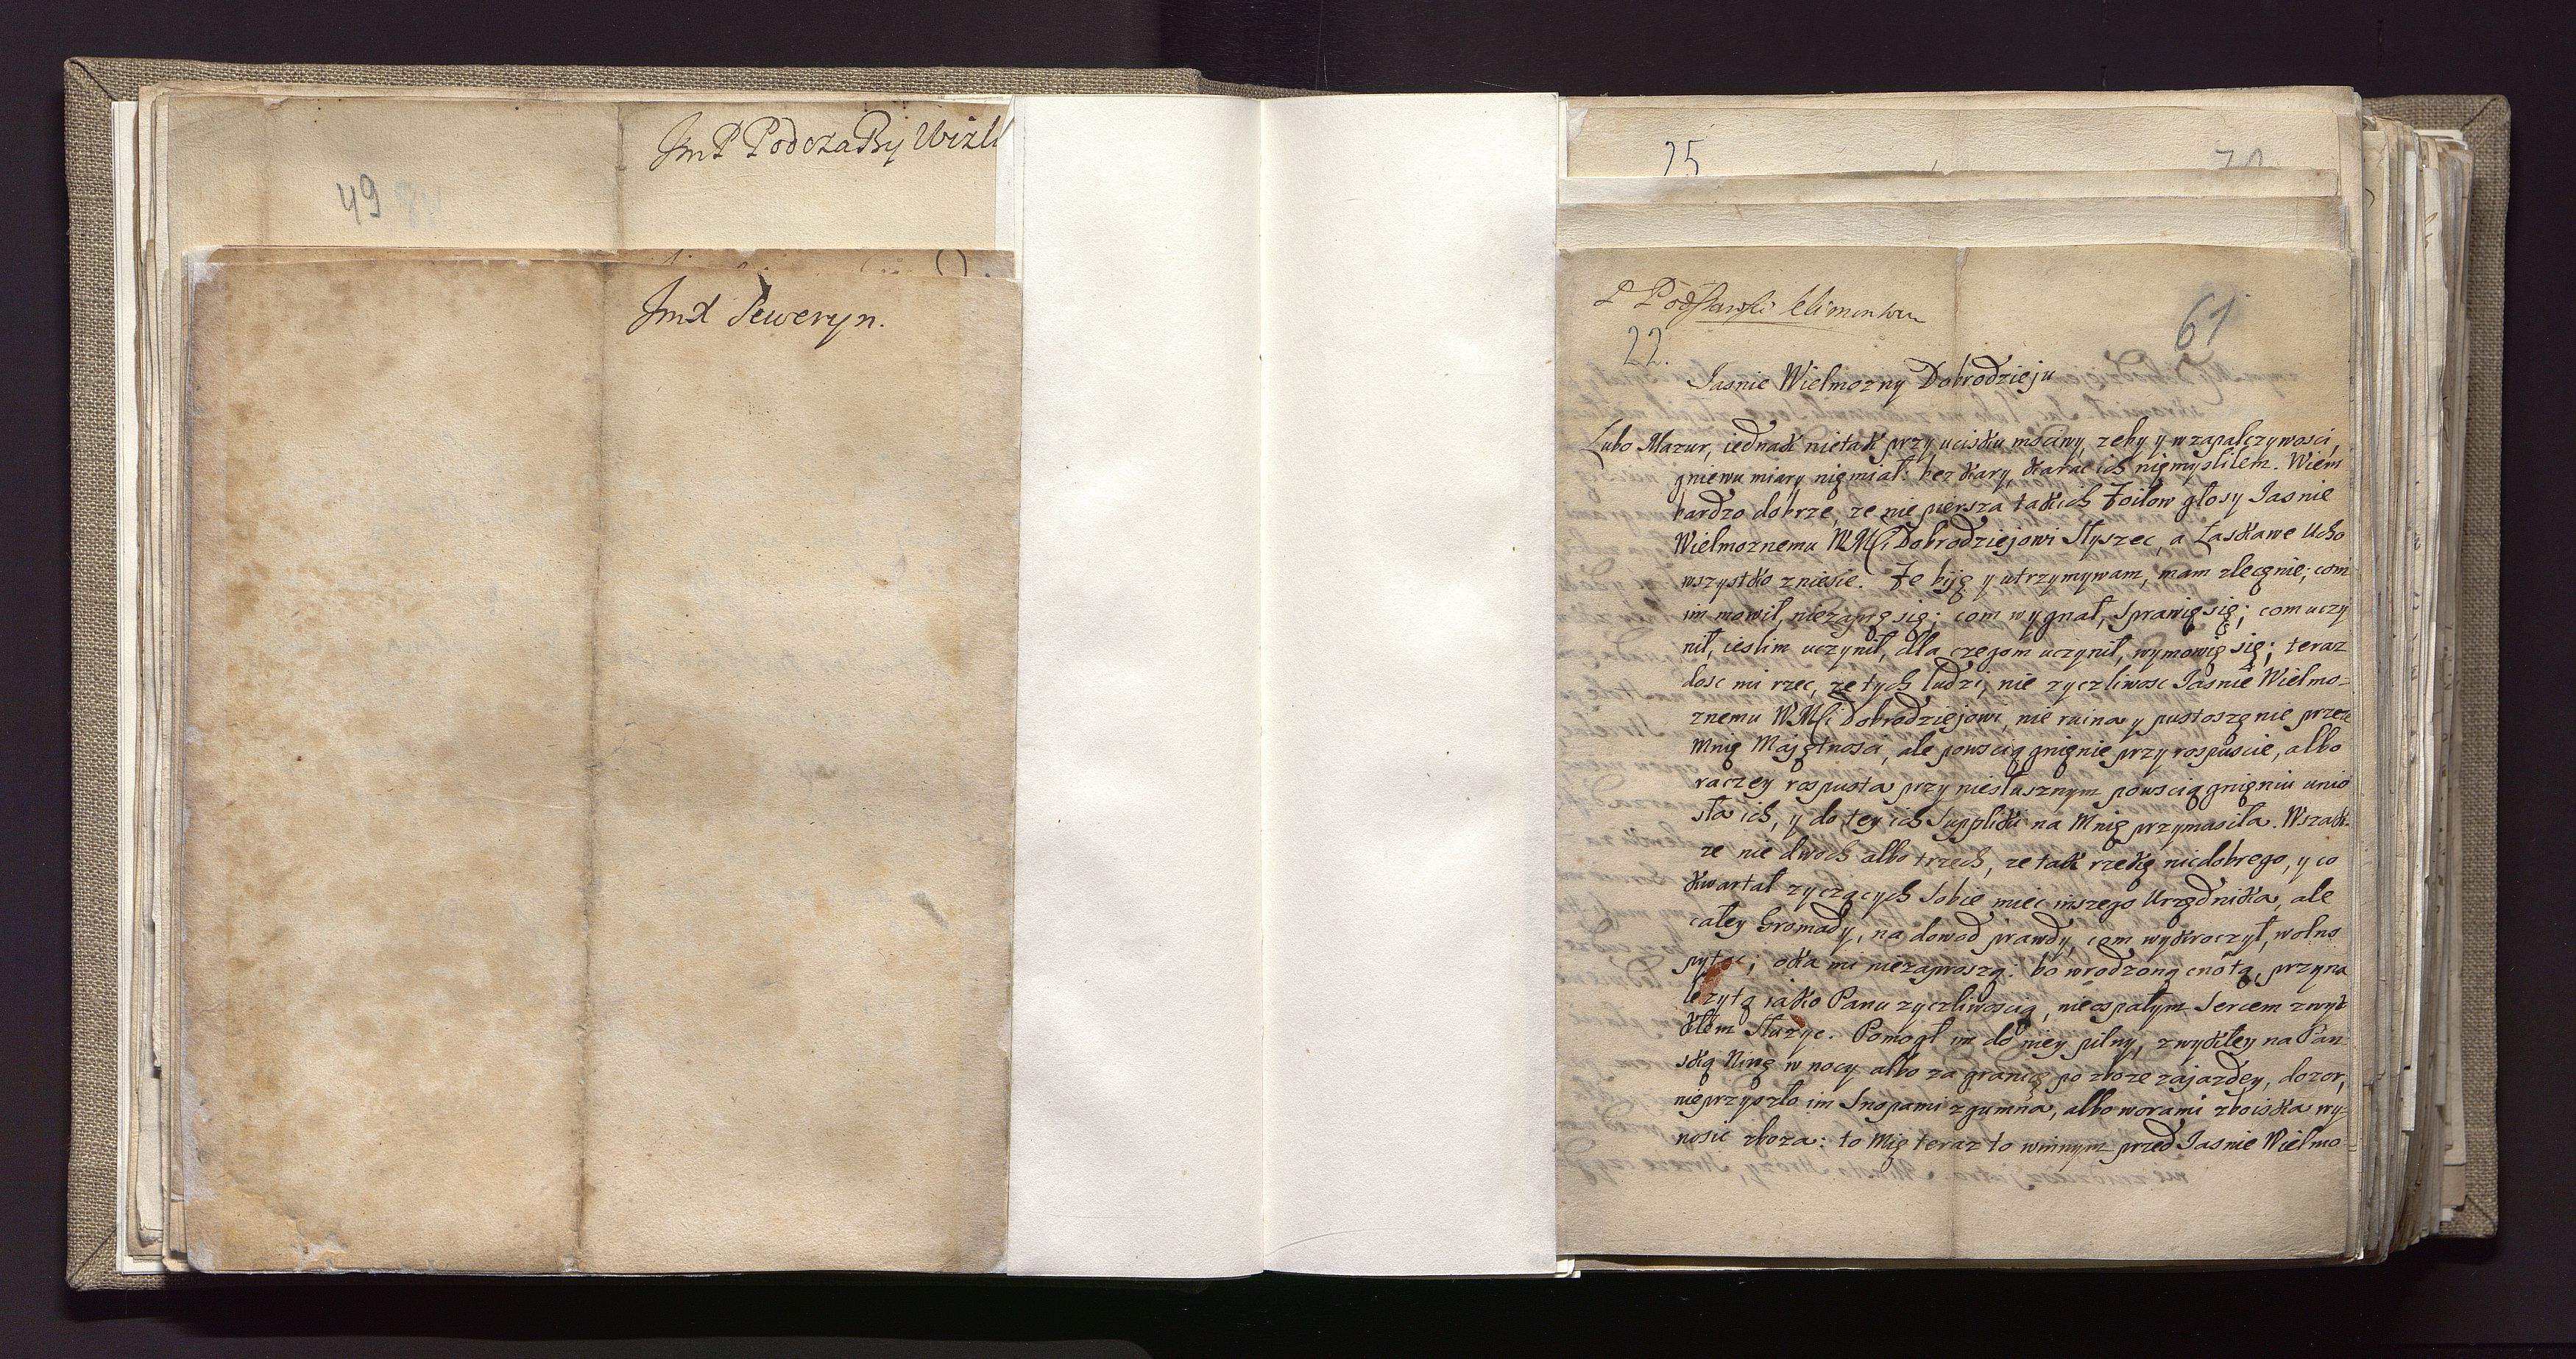 Jm P Podczaszy Wizki
49
JmX Seweryn.
25
P Podstawski
22.
61
Iasnie Wielmozny Dobrodzieju
Lubo Mazur, iednak nietak przy ucisku msciwy, zeby y w zapalczywosci,
gniewu miary niemiał: bez kary, karac ich niemyslilem. Wiem
bardzo dobrze, ze nie piersza takich Zoilow głosy Iasnie
Wielmoznemu WMći Dobrodziejowi słyszec, a Łaskawe Ucho
wszystko zniesie. Ze biję y utrzymywam, mam zlecęnie; com
im mowił, niezaprę się; com wygnał, sprawię się; com uczy
nił, ieslim uczynił, dla czegom uczynił, wymowię się; teraz
dosc mi rzec, ze tych ludzi, nie zyczliwosc Iasnie Wielmo-
znemu WMći Dobrodziejowi, nie ruina y pustoszęnie przeze
Mnię Majętnosci, ale powsciągnięnie przy rospuscie, albo
raczey rospusta przy niesłusznym powsciągnięniu unio
sła ich, y do tey ich Suppliki na Mnię przymusiła. Wszak-
ze nie dwoch albo trzech, ze tak rzekę nicdobrego, y co
kwartał zyczących sobie miec inszego Urzędnika, ale
całey Gromady, na dowod prawdy, com wykroczył, wolno
pytac; oka mi niezaproszą: bo wrodzoną cnotą, przyna
lezytą iako Panu zyczliwoscią, nieospałym sercem zwyk
kłem służyc. Pomogł im do niey pilny, zwykłey na Pan
ską Niwę w nocy albo za granicę po zboze zajazdey, dozor,
nieprzyszło im Snopami zgumna, albo worami zboiska wy-
nosic zboza: to Mię teraz to winnym przed Iasnie Wielmo-